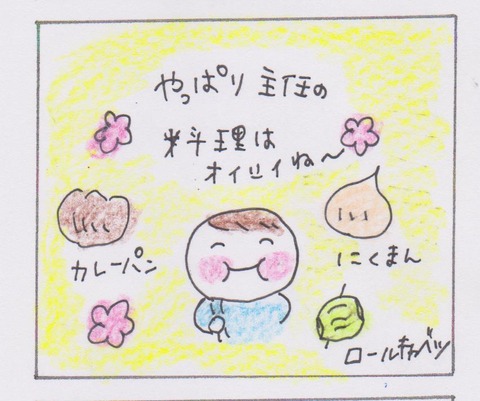 やっぱり主任の
料理は
オイシイね〜
カレーパン
にくまん
ロールキャベツ